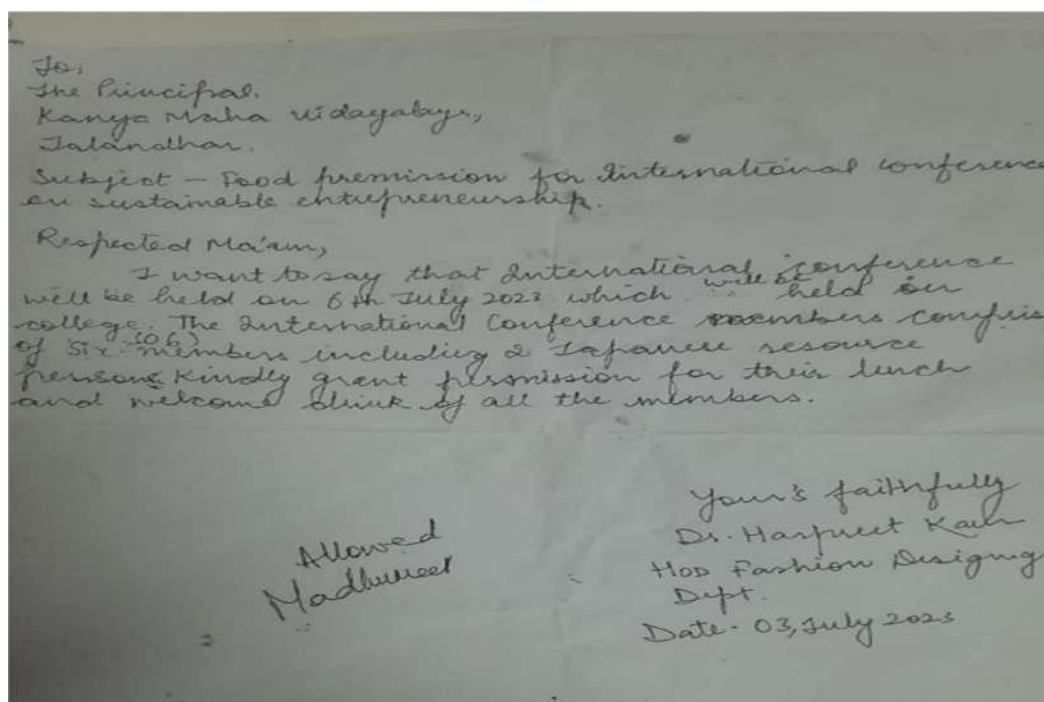 To,
The Principal.
Kanya Maha Vidayalaya,
Jalandhar.
Subject - Food premission for International conference
on sustainable entrepreneurship.
Respected Ma'am,
I want to say that International conference
will be held on 6th July 2023 which will be held in
college. The International Conference members compris
of six (06) members including 2 Japanese resource
persons. Kindly grant permission for their lunch
and welcome drink of all the members.
Your's faithfully
Dr. Harpreet Kaur
HOD Fashion Designing
Dept.
Date - 03, July 2023
Allowed